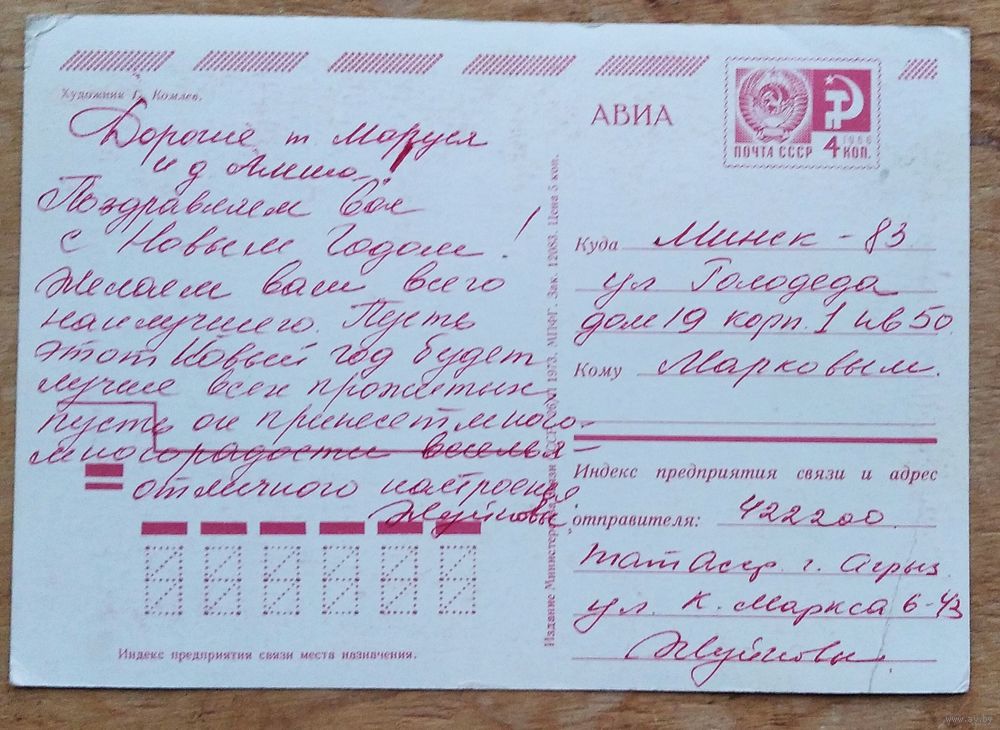 Художник Г. Комлев.
Дорогие т Маруся
и д
Поздравляем Вас
с Новым Годом!
Желаем вам всего
наилучшего. Пусть
этот Новый год будет
лучше всех прожитых,
пусть он принесет много-
много радости веселья-
отличного настроения
Жуйковы
Индекс предприятия связи места назначения.
Издание Министерства связи СССР 1973. МПФГ. Зак. 12083. Цена 5 коп.
АВИА
ПОЧТА СССР 4 КОП.
1966
Куда Минск - 83
ул Голодеда
дом 19 корп. 1 кв 50
Кому Марковым.
Индекс предприятия связи и адрес
отправителя: 422200
ТатАсср. г. Агрыз
ул. К. Маркса 6-43
Жуйковы
www.ay.by